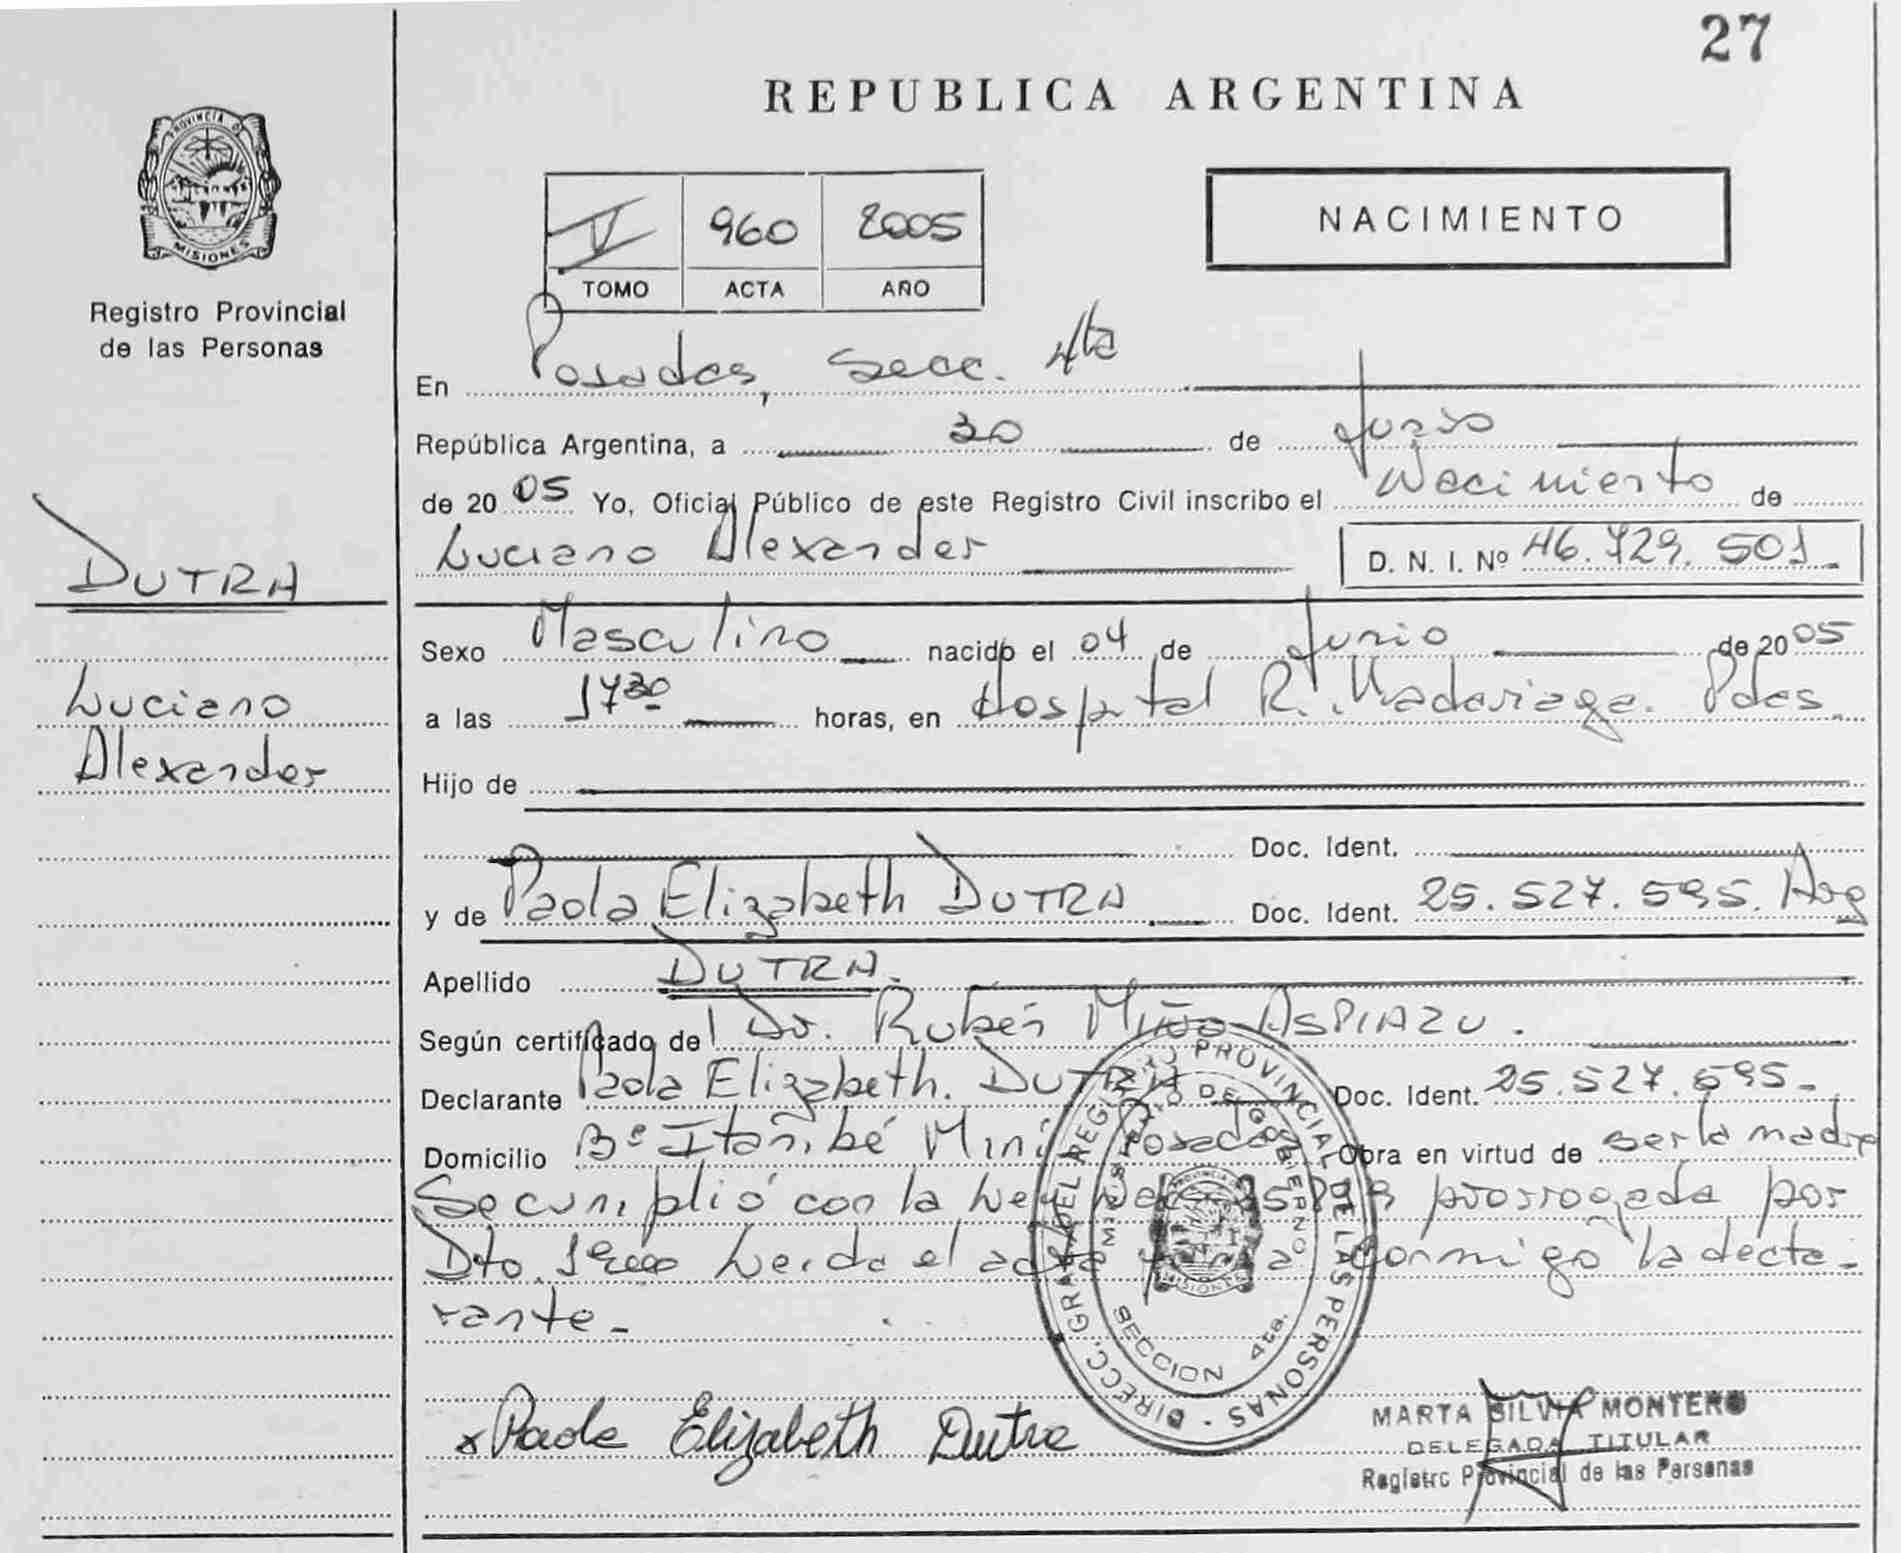 27
REPUBLICA ARGENTINA
PROVINCIA DE
MISIONES
Registro Provincial
de las Personas
V 960 2005
TOMO ACTA AÑO
NACIMIENTO
En Posadas, Secc. 4ta
República Argentina, a 30 de Junio
de 2005 Yo, Oficial Público de este Registro Civil inscribo el Nacimiento de
Luciano Alexander D. N. I. Nº 46.729.501.
DUTRA
Luciano
Alexander
Sexo Masculino nacido el 04 de Junio de 2005
a las 17 30 horas, en Hospital R. Madariaga. Pdas.
Hijo de
Doc. Ident.
y de Paola Elizabeth DUTRA Doc. Ident. 25.527.595. Arg
Apellido DUTRA.
Según certificado de Dr. Rubén Miño ASPIAZU.
Declarante Paola Elizabeth. DUTRA Doc. Ident. 25.527.595.
Domicilio Bº Itañibé Miní Posadas Obra en virtud de ser la madre
Se cumplió con la Ley prorrogada por
Dto. Leida el acta firma conmigo la decla-
rante.
DIRECC. GRAL. DEL REGISTRO PROVINCIAL DE LAS PERSONAS
MINISTERIO DE GOBIERNO
SECCION 4ta.
PROVINCIA DE
MISIONES
x Paola Elizabeth Dutra
MARTA SILVIA MONTERO
DELEGADA TITULAR
Registro Provincial de las Personas